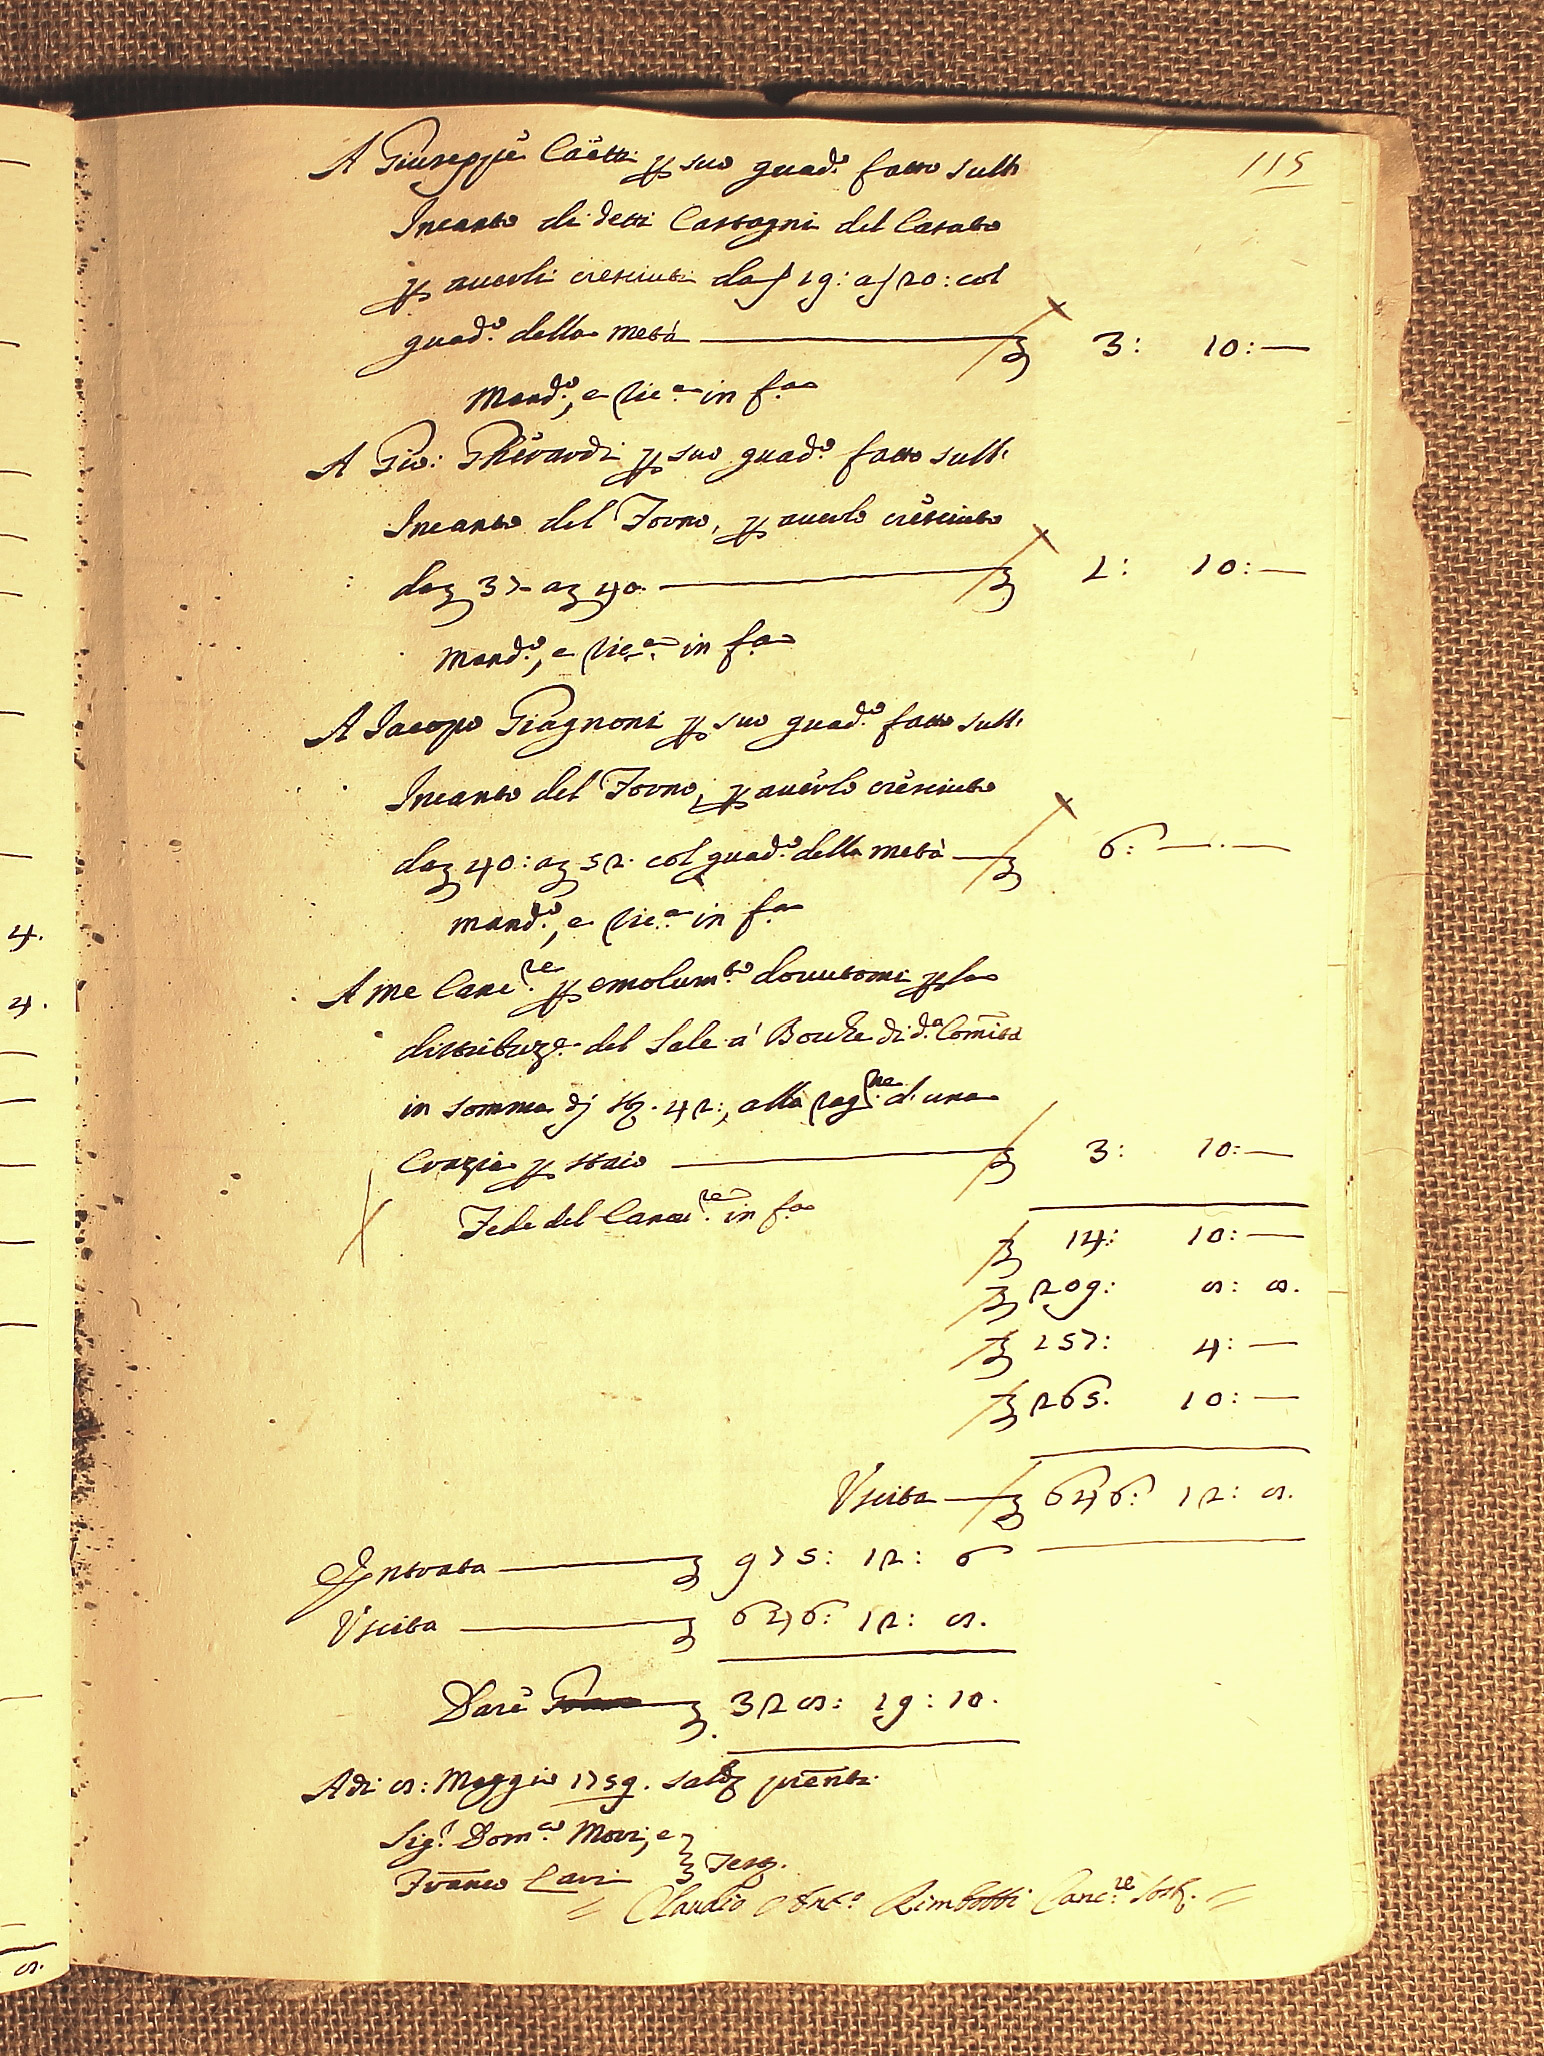 115
A Giuseppe Caëtti p suo guad.º fatto sull'
Incanto di detti Castagni del Casato
p auerli cresciuti da ∫ 19: a ∫ 20: col
guad.º della metà — £ 3: 10: —
Mand.º, e Ric.a in f.a
A Gio: Gherardi p suo guad.º fatto sull'
Incanto del Forno, p auerlo cresciuto
da £ 37 a £ 40 — £ 1: 10: —
Mand.º, e Ric.a in f.a
A Iacopo Giagnoni p suo guad.º fatto sull'
Incanto del Forno, p auerlo cresciuto
da £ 40: a £ 52. col guad.º della metà — £ 6: — . —
Mand.º, e Ric.a in f.a
A me Canc.re p emolum.to douutomi p la
distribuz.e del Sale a' Bocche di d.a Com̄ità
in somma di st. 42:, alla rag.ne d'una
Crazia p staio — £ 3: 10: —
Fede del Canc.re in f.a
£ 14: 10: —
£ 209: 8: 8.
£ 157: 4: —
£ 265. 10: —
Vscita — £ 646: 12: 8.
Entrata — £ 975: 12: 6
Vscita — £ 646: 12: 8.
Dare — £ 328: 19: 10.
Adi 8: Maggio 1759. Sald.º p̄renti
Sig.r Dom.co Mori, e
Fran̄co Lari } Test.
= Claudio Ant.º Rimbotti Canc.re Sost. =